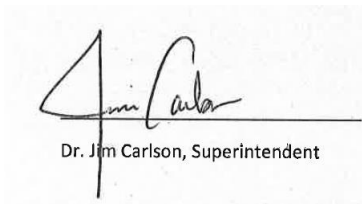 Jim Carlson
Dr. Jim Carlson, Superintendent